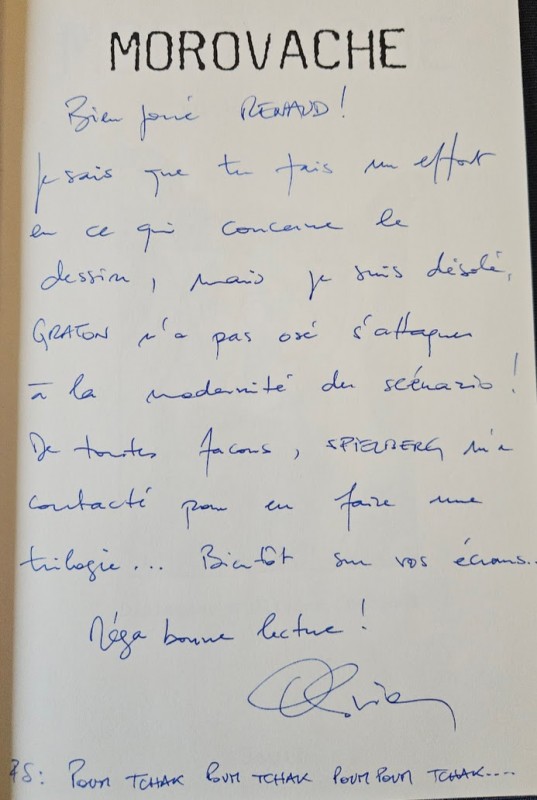 MOROVACHE
Bien joué RENAUD !
Je sais que tu fais un effort
en ce qui concerne le
dessin, mais je suis désolé,
GRATON n'a pas osé s'attaquer
à la modernité du scénario !
De toutes façons, SPIELBERG m'a
contacté pour en faire une
trilogie... Bientôt sur vos écrans...
Méga bonne lecture !
PS: POUM TCHAK POUM TCHAK POUM POUM TCHAK....